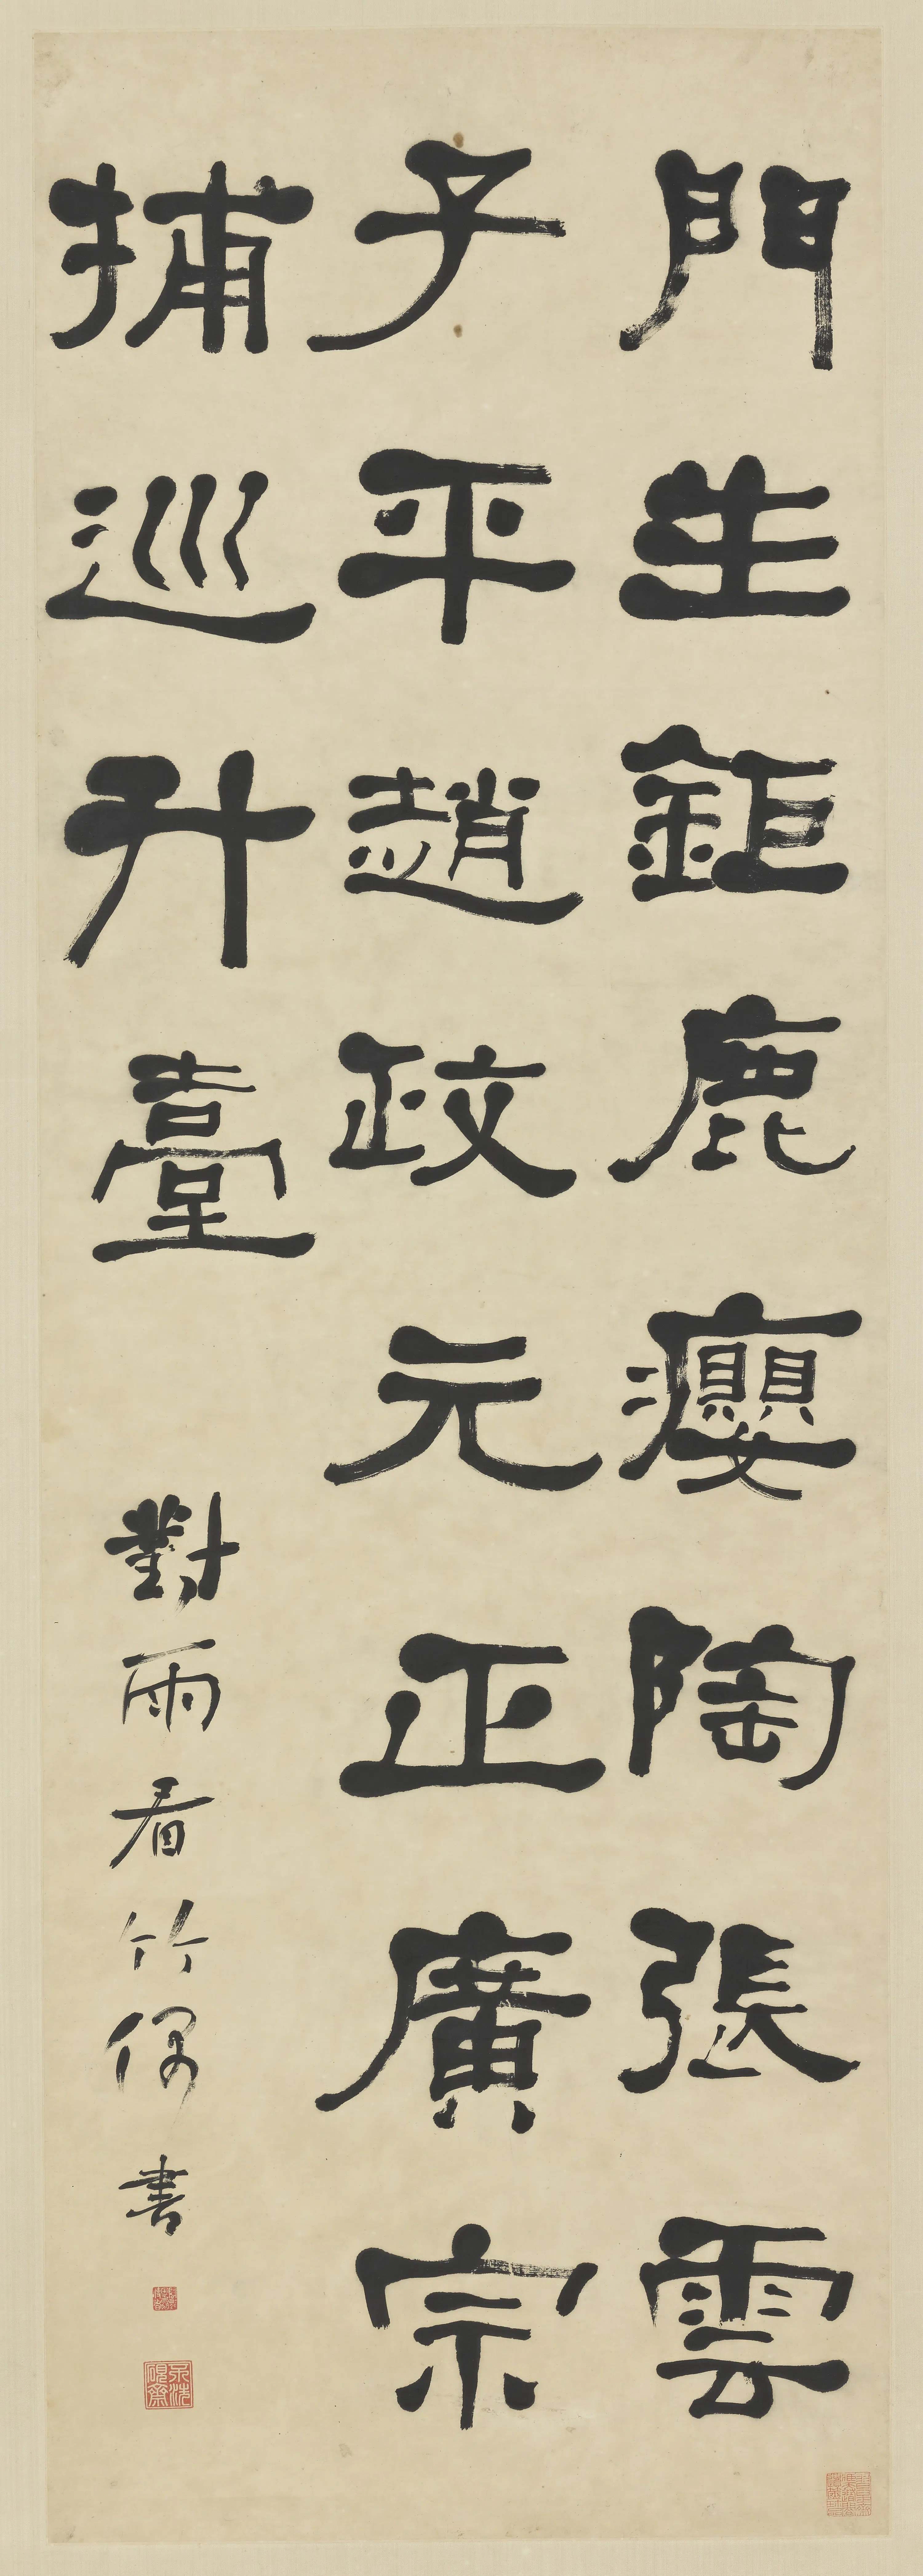 門生鉅鹿癭陶張雲
子平趙政元正廣宗
捕巡升臺
對雨看竹偶書
不洗硯齋